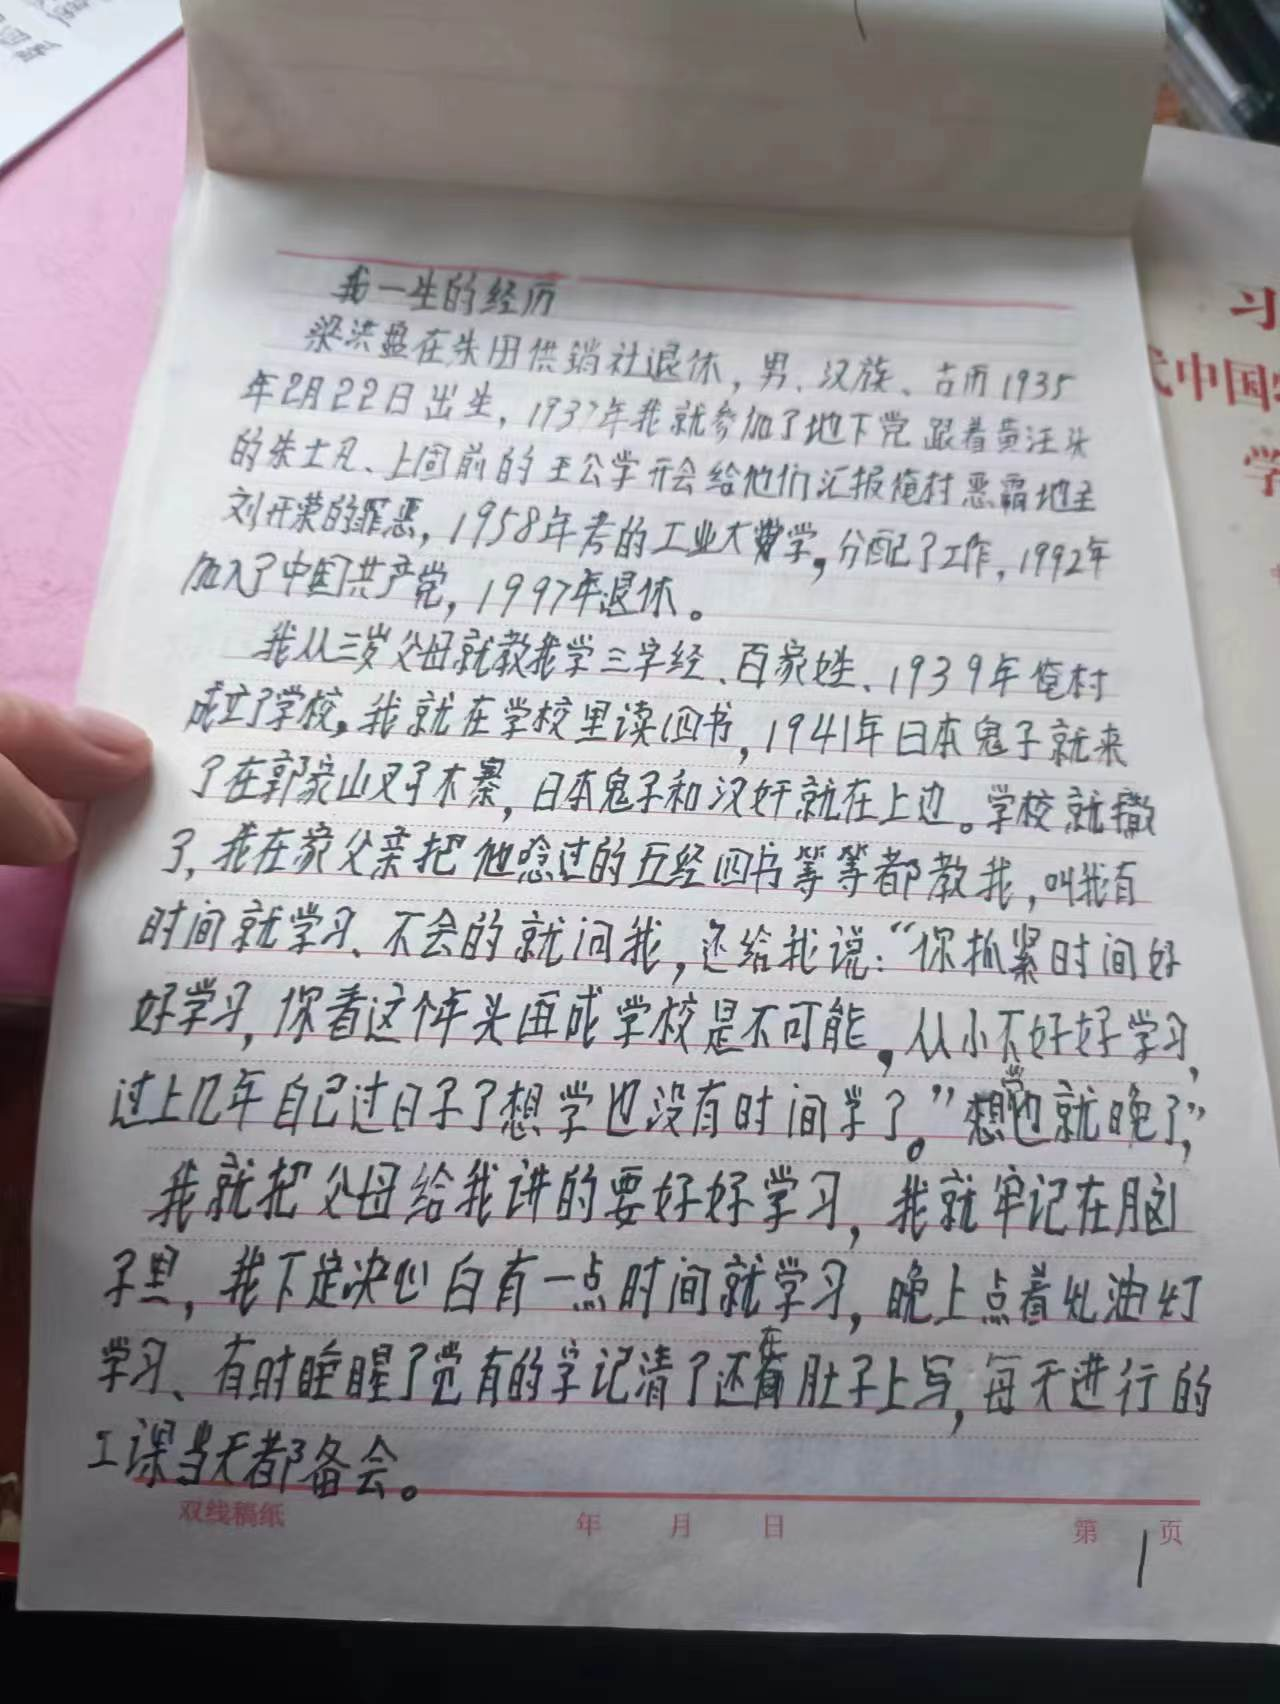 我一生的经历
梁洪盈在朱田供销社退休，男、汉族、古历1935
年2月22日出生，1937年我就参加了地下党跟着黄汪头
的朱士凡、上固前的王公学开会给他们汇报俺村恶霸地主
刘开荣的罪恶，1958年考的工业大学，分配了工作，1992年
加入了中国共产党，1997年退休。
我从三岁父母就教我学三字经、百家姓、1939年俺村
成立了学校，我就在学校里读四书，1941年日本鬼子就来
了在郭家山叉了木寨，日本鬼子和汉奸就在上边。学校就撤
了，我在家父亲把他念过的五经四书等等都教我，叫我有
时间就学习、不会的就问我，还给我说：“你抓紧时间好
好学习，你看这个年头再成学校是不可能，从小不好好学习，
过上几年自己过日子了想学也没有时间学了。”想学也就晚了，”
我就把父母给我讲的要好好学习，我就牢记在脑
子里，我下定决心白有一点时间就学习，晚上点着灶油灯
学习、有时睡醒了觉有的学记清了还在肚子上写，每天进行的
工课当天都备会。
双线稿纸 年 月 日 第 1 页
习
代中国
学